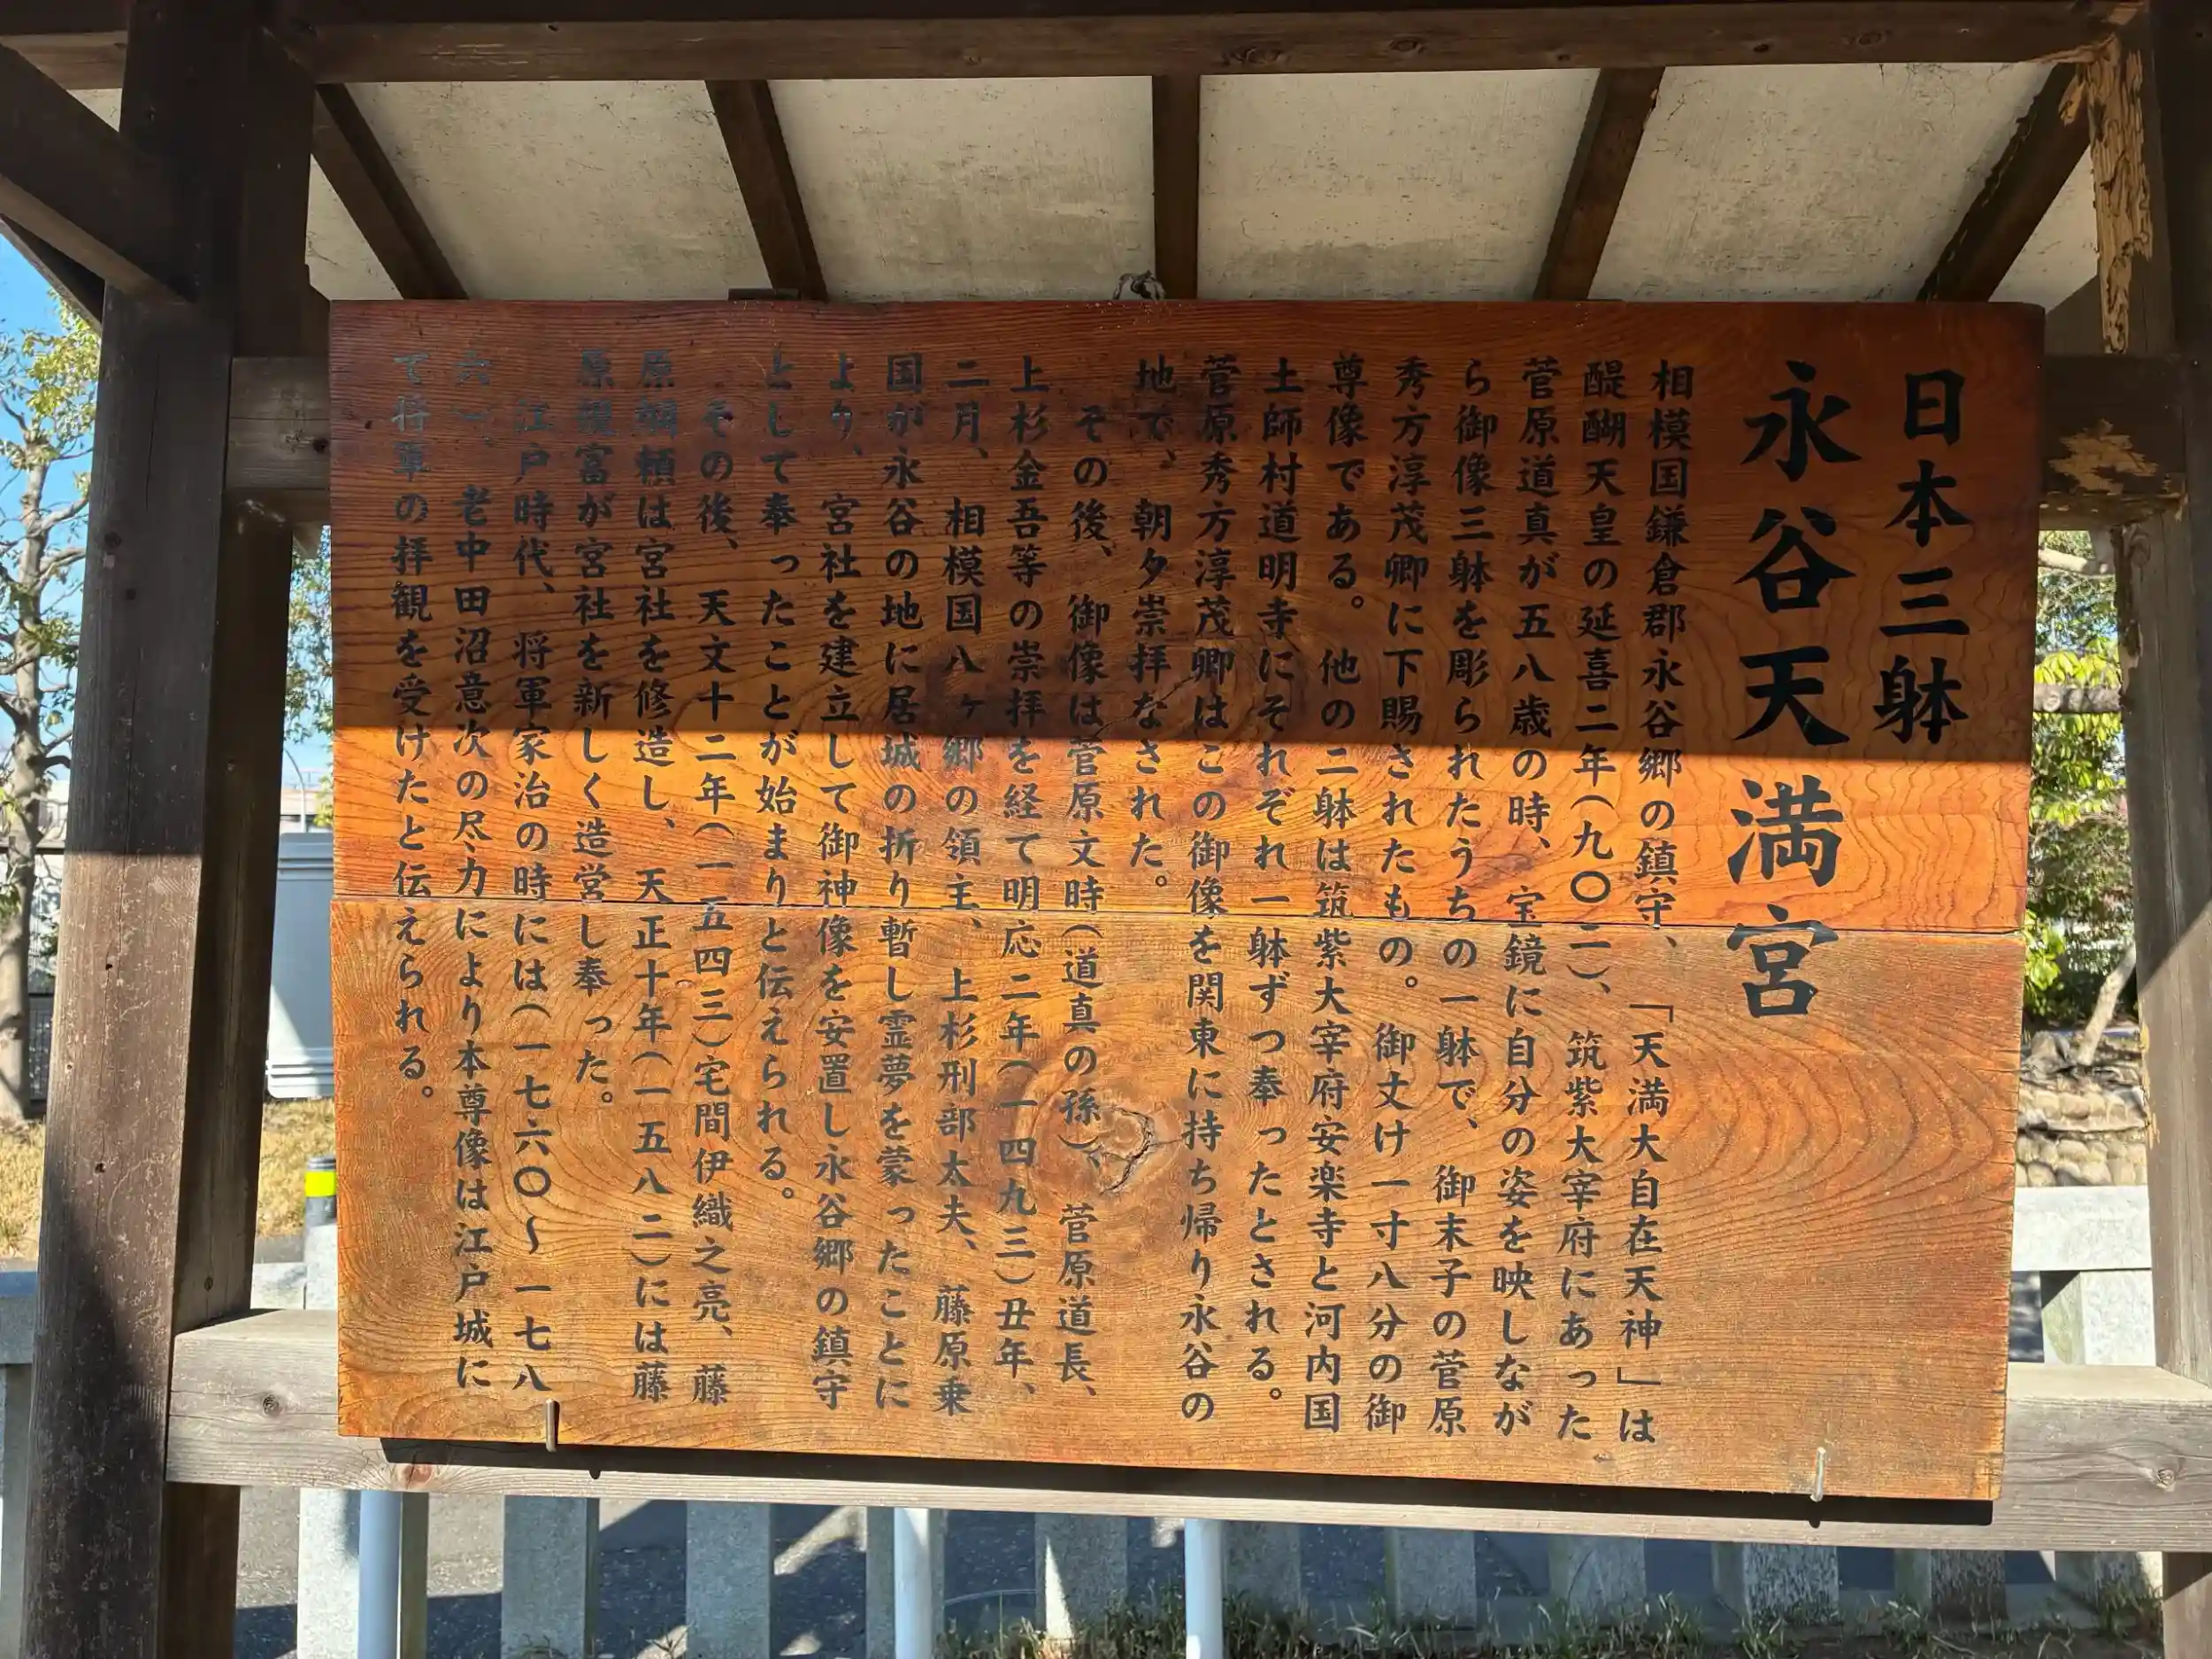 日本三躰
永谷天満宮
相模国鎌倉郡永谷郷の鎮守、「天満大自在天神」は
醍醐天皇の延喜二年(九〇二)、筑紫大宰府にあった
菅原道真が五八歳の時、宝鏡に自分の姿を映しなが
ら御像三躰を彫られたうちの一躰で、御末子の菅原
秀方淳茂卿に下賜されたもの。御丈け一寸八分の御
尊像である。他の二躰は筑紫大宰府安楽寺と河内国
土師村道明寺にそれぞれ一躰ずつ奉ったとされる。
菅原秀方淳茂卿はこの御像を関東に持ち帰り永谷の
地で、朝夕崇拝なされた。
その後、御像は菅原文時(道真の孫)、菅原道長、
上杉金吾等の崇拝を経て明応二年(一四九三)丑年、
二月、相模国八ヶ郷の領主、上杉刑部太夫、藤原乗
国が永谷の地に居城の折り暫し霊夢を蒙ったことに
より、宮社を建立して御神像を安置し永谷郷の鎮守
として奉ったことが始まりと伝えられる。
その後、天文十二年(一五四三)宅間伊織之亮、藤
原綱頼は宮社を修造し、天正十年(一五八二)には藤
原規富が宮社を新しく造営し奉った。
江戸時代、将軍家治の時には(一七六〇〜一七八
六)、老中田沼意次の尽力により本尊像は江戸城に
て将軍の拝観を受けたと伝えられる。